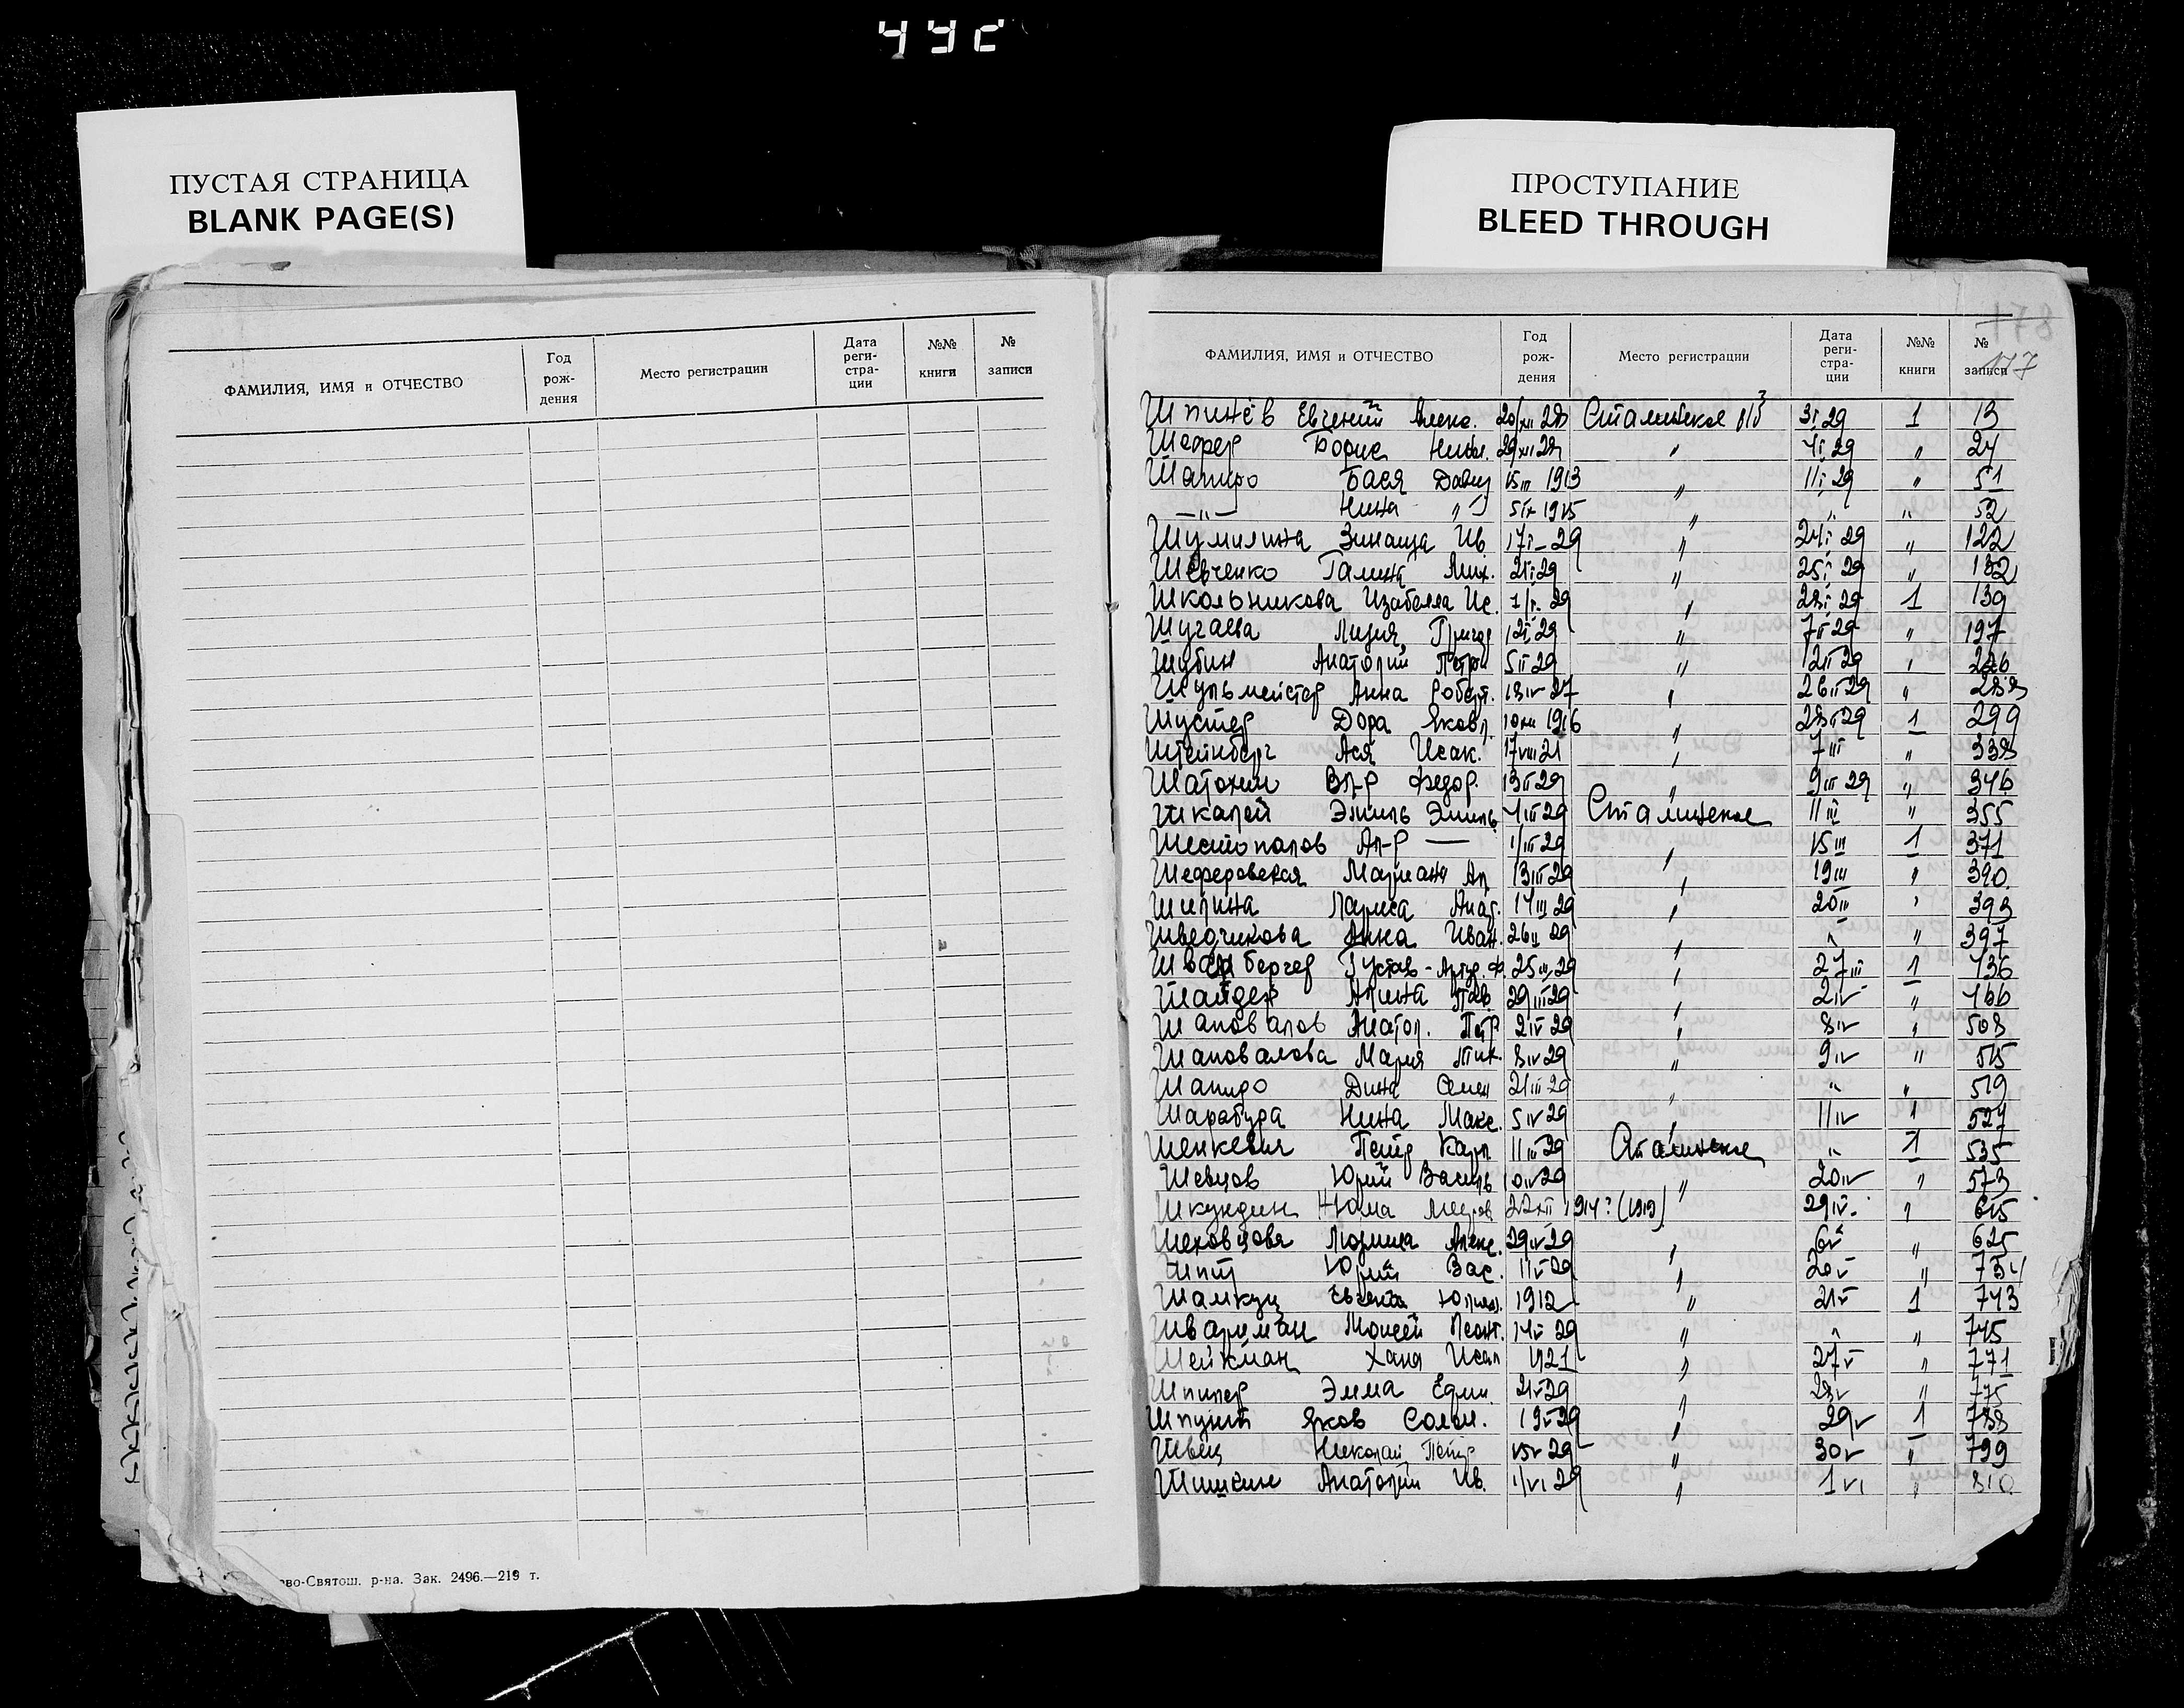 ПУСТАЯ СТРАНИЦА
BLANK PAGE(S)
ПРОСТУПАНИЕ
BLEED THROUGH
ФАМИЛИЯ, ИМЯ и ОТЧЕСТВО Год рож-дения Место регистрации Дата реги-стра-ции №№ книги № записи
во-Святош. р-на. Зак. 2496.—219 т.
177
ФАМИЛИЯ, ИМЯ и ОТЧЕСТВО Год рож-дения Место регистрации Дата реги-стра-ции №№ книги № записи
Шпинёв Евгений Алекс. 20/XII 28 Сталинское 3 I 29 1 13
Шефер Борис 29 XII 28 " 4 I 29 " 24
Шапиро Бася Давид 15 III 1913 " 11 I 29 " 51
—"— Нина " 5 IX 1915 " " " 52
Шумилина Зинаида Ив. 17 I – 29 " 24 I 29 " 122
Шевченко Галина Мих. 21 I 29 " 25 I 29 " 132
Школьникова Изабелла Ис. 1/I 29 " 28 I 29 1 139
Шугаева Лидия Григор 12 I 29 " 7 II 29 " 197
Шубин Анатолий Петр 5 II 29 " 12 II 29 "
Шульмейстер Анна Роберт. 13 IV 27 " 26 II 29 " 288
Шустер Дора Яковл. 10 XII 1916 " 28 II 29 1 299
Штейнберг Ася Исак. 17 VIII 21 " 7 III " 338
Шатохин Вл-р Федор. 13 II 29 " 9 III 29 " 346
Шкалей Эмиль Эмиль. 4 III 29 Сталинское 11 III " 355
Шестопалов Ал-р — 1/III 29 " 15 III 1 371
Шефервская Мариана Ал 13 III 29 " 19 III " 390
Шилина Лариса Анат. 14 III 29 " 20 III " 393
Шведчикова Анна Иван. 26 II 29 " " " 397
Густав- 25 III 29 " 27 III 1 436
Шайдер Алина Пав. 29 III 29 " 2 IV " 466
Шаповалов Анатол. Петр 2 IV 29 " 8 IV " 508
Шаповалова Мария Ник. 3 IV 29 " 9 IV " 515
Шапиро Дина Семен 21 III 29 " " " 519
Шарабура Нина Макс. 5 IV 29 " 11 IV " 527
Шенкевич Петр Карл 11 III 29 Сталинское " 1 535
Шевцов Юрий Василь 10 IV 29 " 20 IV " 573
Шкундин Нюма 22 XII 1914? (1919) " 29 IV. " 615
Шеховцова Людмила Алекс. 29 IV 29 " 6 V " 625
Юрий Вас. 11 V 29 " 20 V " 734
Шамкуц Евгения 1912 " 21 V 1 743
Шварцман Моисей Леонт. 14 V 29 " " " 745
Шейкман Хана Исаа 1921 " 27 V " 771
Шпилер Эмма Едми 21 V 29 " 28 V " 775
Шпунт Яков Солом. 19 V 29 " 29 V 1 788
Швец Николай Петр 15 V 29 " 30 V " 799
Шишкин Анатолий Ив. 1/VI 29 " 1 VI " 810